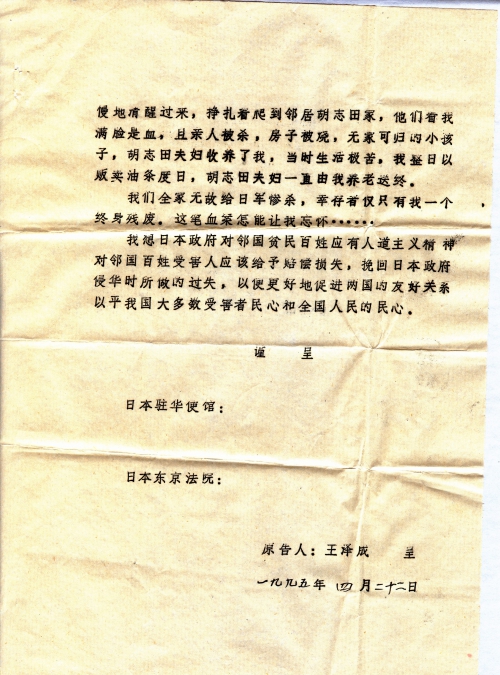 慢地清醒过来，挣扎着爬到邻居胡志田家，他们看我
满脸是血，且亲人被杀，房子被烧，无家可归的小孩
子，胡志田夫妇收养了我，当时生活极苦，我整日以
贩卖油条度日，胡志田夫妇一直由我养老送终。
我们全家无故给日军惨杀，幸存者仅只有我一个，
终身残废。这笔血案怎能让我忘怀……
我想日本政府对邻国贫民百姓应有人道主义精神
对邻国百姓受害人应该给予赔偿损失，挽回日本政府
侵华时所做的过失，以便更好地促进两国的友好关系
以平我国大多数受害者民心和全国人民的民心。
谨 呈
日本驻华使馆：
日本东京法院：
原告人：王泽成 呈
一九九五年 四月二十二日